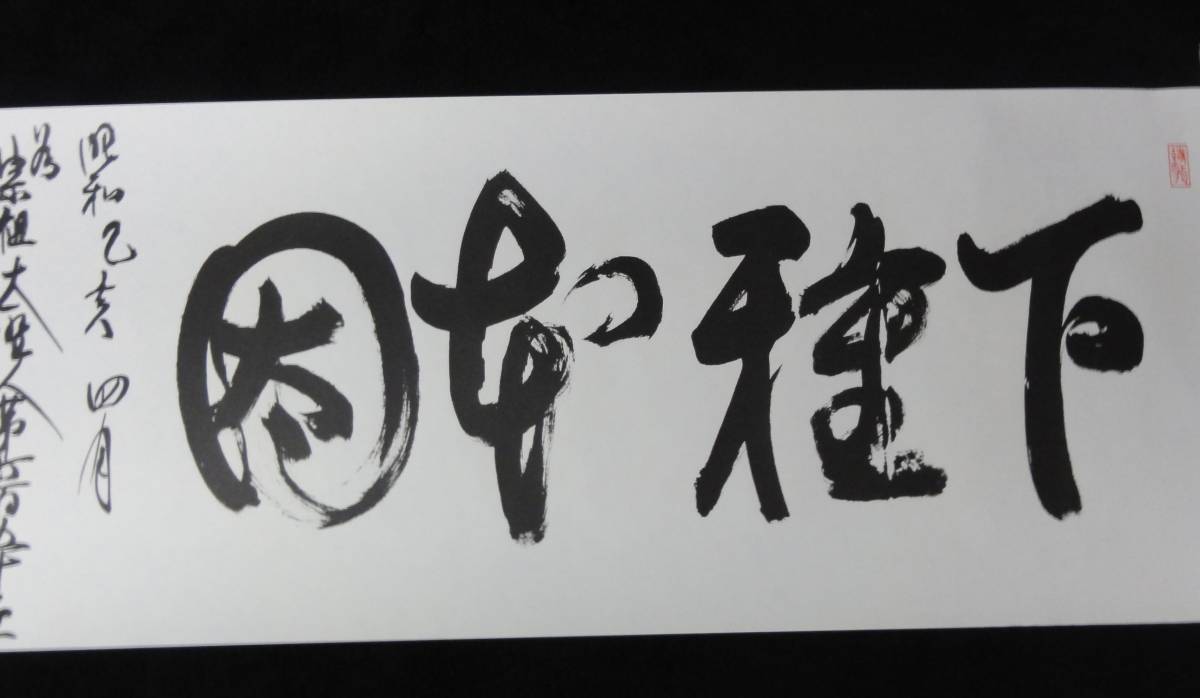 下種本因
昭和乙亥四月
為宗祖大聖人第六百五十